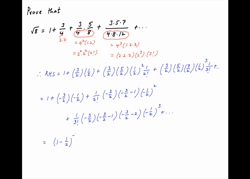 Prove that
√8 = 1 + 3/4 + 3·5/4·8 + 3·5·7/4·8·12 + ...
= 4²(1×2)
= 4³(1×2)
∴ RHS = 1 + (3/2)(1/2) + (3/2)(5/2)(1/2)² 1/2! + (3/2)(5/2)(7/2)(1/2)³ 1/3! + ...
= 1 + (-3/2)(-1/2) + 1/2! (-3/2)(-3/2-1)(-1/2)²
+ 1/3! (-3/2)(-3/2-1)(-3/2-2)(-1/2)³ + ...
= (1-1/2)⁻